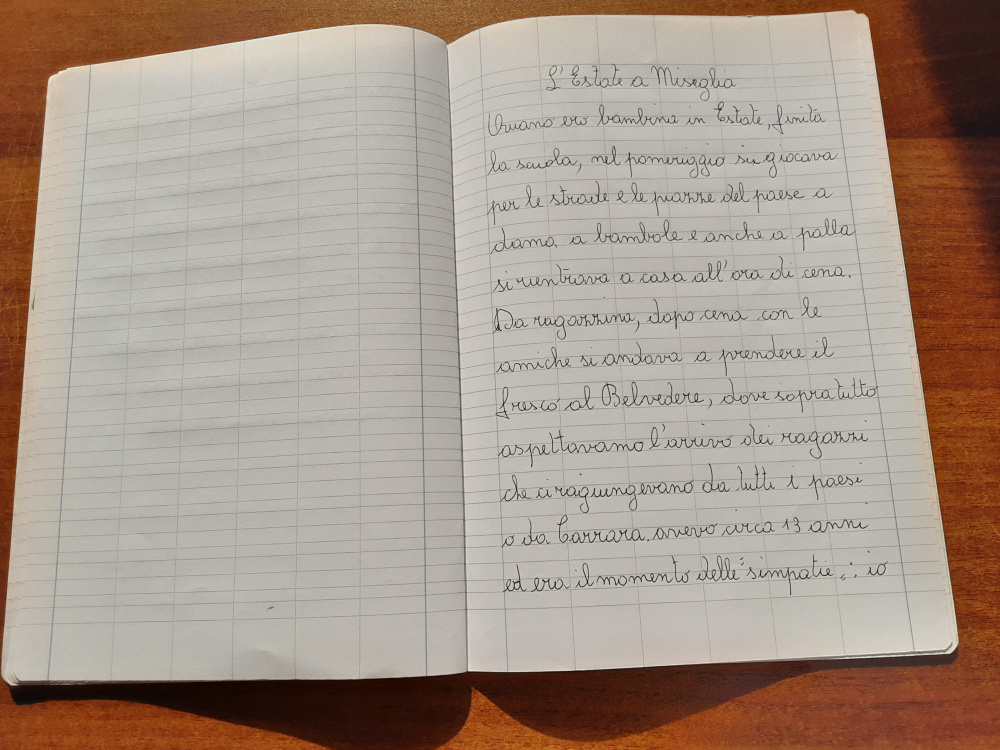 L'Estate a Miseglia
Quano ero bambina in Estate, finita
la scuola, nel pomeriggio si giocava
per le strade e le piazze del paese a
dama a bambole e anche a palla
si rientrava a casa all'ora di cena.
Da ragazzina, dopo cena con le
amiche si andava a prendere il
fresco al Belvedere, dove sopratutto
aspettavamo l'arrivo dei ragazzi
che ci ragiungevano da tutti i paesi
o da Carrara. avevo circa 13 anni
ed era il momento delle "simpatie": io